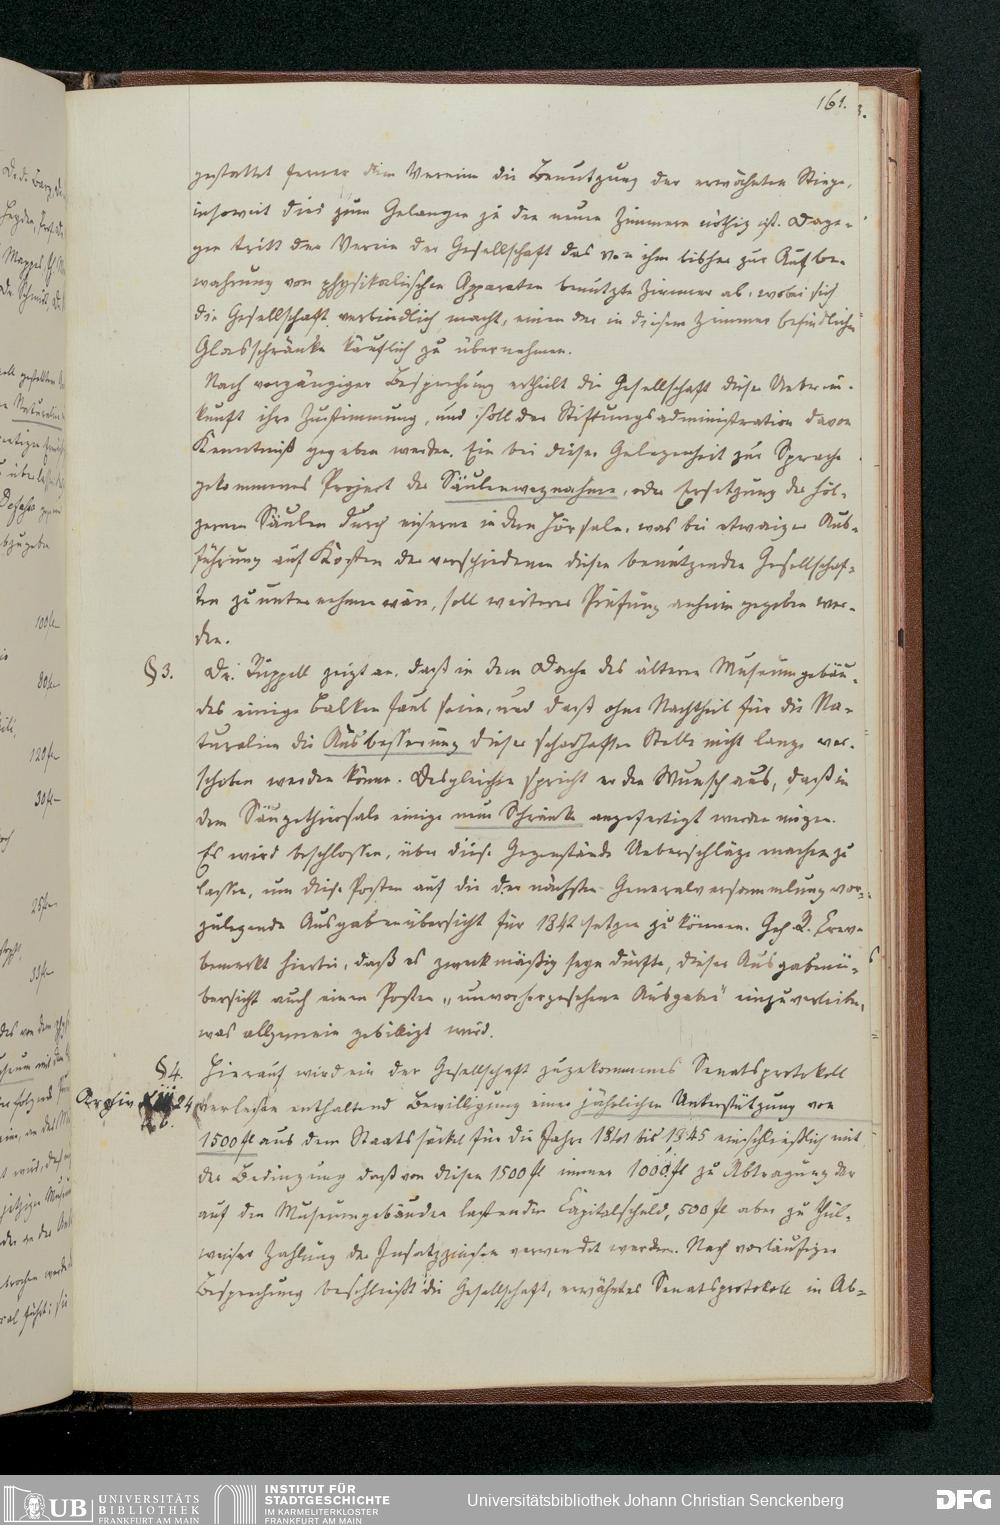 161.
gestattet ferner dem Verein die Benutzung der erwähnten Stiege,
insoweit dies zum Gelangen zu den neuen Zimmern nöthig ist. Dage-
gen tritt der Verein der Gesellschaft das von ihm bisher zur Aufbe-
wahrung von physikalischen Apparaten benützte Zimmer ab, wobei sich
die Gesellschaft verbindlich macht, einen der in diesem Zimmer befindlichen
Glasschränke käuflich zu übernehmen.
Nach vorgängiger Besprechung ertheilt die Gesellschaft dieser Ueberein-
kunft ihre Zustimmung, und soll der Stiftungsadministration davon
Kenntniß gegeben werden. Ein bei dieser Gelegenheit zur Sprache
gekommenes Project der Säulenwegnahme, oder Ersetzung der höl-
zernen Säulen durch eiserne in dem Hörsale, was bei etwaiger Aus-
führung auf Kosten der verschiedenen diesen benützenden Gesellschaf-
ten zu unternehmen wäre, soll weiterer Prüfung anheim gegeben wer-
den.
§3. Dr. Rüppell zeigt an, daß in dem Dache des älteren Museumgebäu-
des einige Balken faul seien, und daß ohne Nachtheil für die Na-
turalien die Ausbesserung dieser schadhaften Stelle nicht lange ver-
schoben werden könne. Desgleichen spricht er den Wunsch aus, daß in
dem Säugethiersale einige neue Schränke angefertigt werden mögen.
Es wird beschlossen, über diese Gegenstände Ueberschläge machen zu
lassen, um diese Posten auf die der nächsten Generalversammlung vor-
zulegende Ausgabenübersicht für 1842 setzen zu können. Geh. R.
bemerkt hierbei, daß es zweckmäßig seyn dürfte, dieser Ausgabenü-
bersicht auch einen Posten „unvorhergesehene Ausgaben" einzuverleiben,
was allgemein gebilligt wird.
§4. Hierauf wird ein der Gesellschaft zugekommenes Senatsprotokoll
Archiv 24 verlesen enthaltend Bewilligung einer jährlichen Unterstützung von
1500 fl aus dem Staatssäckel für die Jahre 1841 bis 1845 einschließlich mit
der Bedingung daß von diesen 1500 fl immer 1000 fl zu Abtragung der
auf den Museumgebäuden lastenden Capitalschuld, 500 fl aber zu theil-
weiser Zahlung der Insatzzinsen verwendet werden. Nach vorläufiger
Besprechung beschließt die Gesellschaft, erwähntes Senatsprotokoll in Ab-
100 fl
80 fl
120 fl
30 fl
25 fl
33 fl
UB UNIVERSITÄTS
BIBLIOTHEK
FRANKFURT AM MAIN
INSTITUT FÜR
STADTGESCHICHTE
IM KARMELITERKLOSTER
FRANKFURT AM MAIN
Universitätsbibliothek Johann Christian Senckenberg
DFG